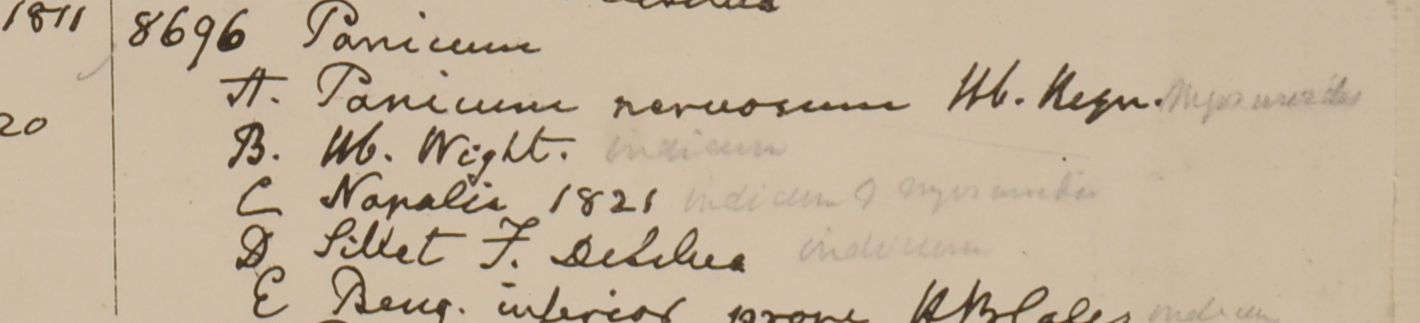 1811 8696 Panicum
A. Panicum nervosum Hb. Heyn. myosuroides
20
B. Hb. Wight. indicum
C Napalia 1821 indicum & myosuroides
D Sillet F. DeSilva indicum
E Beng. inferior prope indicum